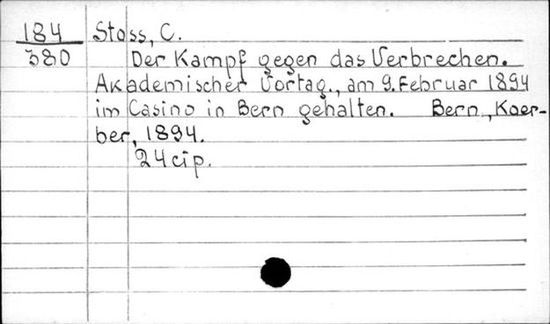 184 Stoss, C.
380 Der Kampf gegen das Verbrechen.
Akademischer Vortag., am 9. Februar 1894
im Casino in Bern gehalten. Bern, Koer-
ber, 1894.
24 cip.